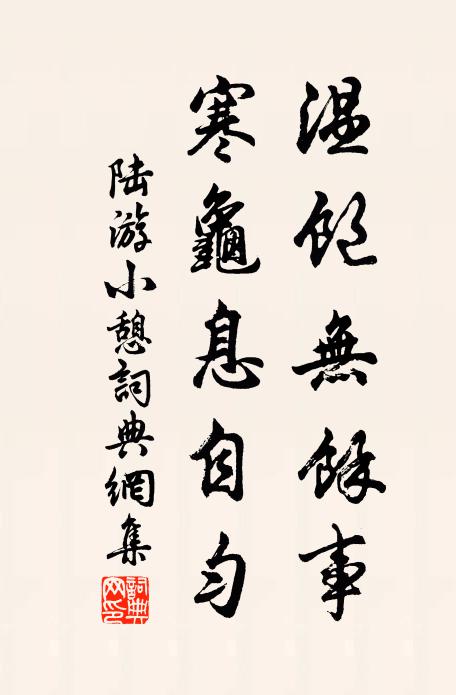 温飽無餘事
寒龜息自勻
陸游小憩詞典網集
詞典網印